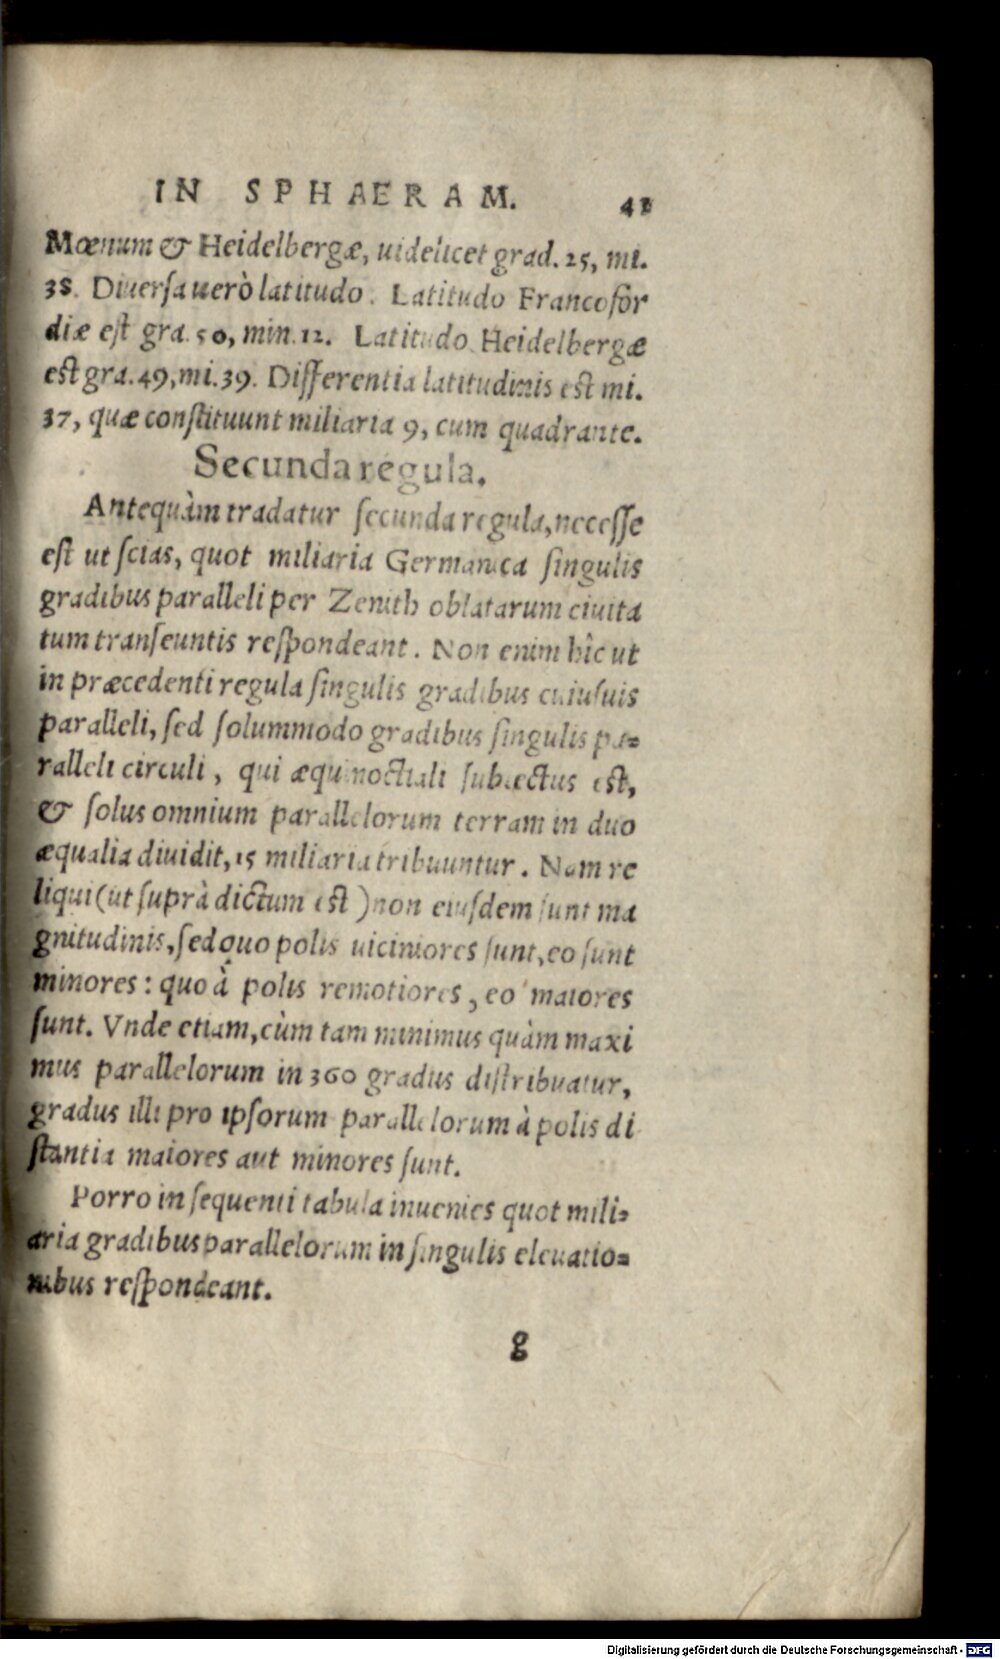 IN SPHAERAM. 41
Mœnum & Heidelbergæ, uidelicet grad. 25, mi.
38. Diuersa uerò latitudo. Latitudo Francofor
diæ est gra. 50, min. 12. Latitudo Heidelbergæ
est gra. 49, mi. 39. Differentia latitudinis est mi.
37, quæ constituunt miliaria 9, cum quadrante.
Secunda regula.
Antequàm tradatur secunda regula, necesse
est ut scias, quot miliaria Germanica singulis
gradibus paralleli per Zenith oblatarum ciuita
tum transeuntis respondeant. Non enim hîc ut
in præcedenti regula singulis gradibus cuiusuis
paralleli, sed solummodo gradibus singulis pa-
ralleli circuli, qui æquinoctiali subiectus est,
& solus omnium parallelorum terram in duo
æqualia diuidit, 15 miliaria tribuuntur. Nam re
liqui (ut suprà dictum est) non eiusdem sunt ma
gnitudinis, sed quo polis uiciniores sunt, eo sunt
minores: quo à polis remotiores, eo maiores
sunt. Vnde etiam, cùm tam minimus quàm maxi
mus parallelorum in 360 gradus distribuatur,
gradus illi pro ipsorum parallelorum à polis di
stantia maiores aut minores sunt.
Porro in sequenti tabula inuenies quot mili-
aria gradibus parallelorum in singulis eleuatio-
nibus respondeant.
g
Digitalisierung gefördert durch die Deutsche Forschungsgemeinschaft - DFG